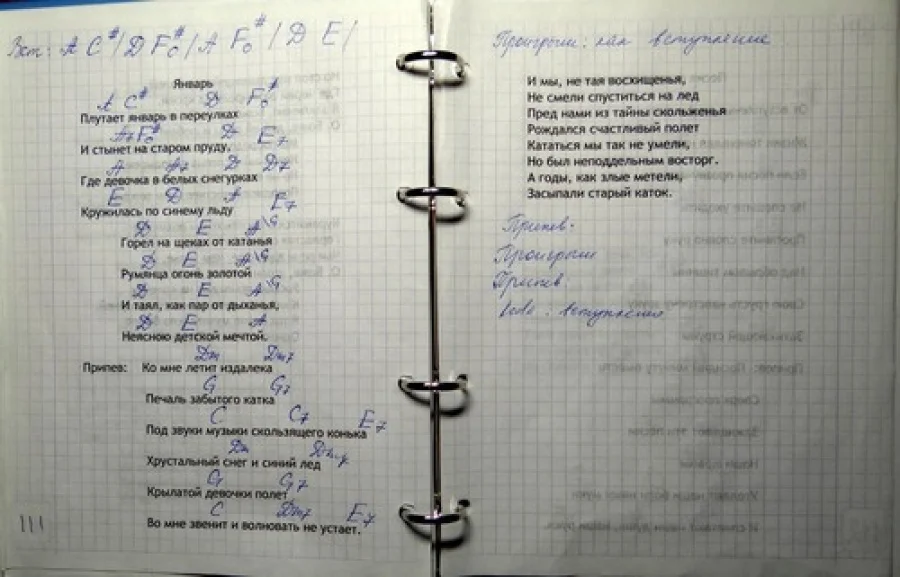 Вст: A C# / D F#o / A F#o / D E /
Январь
A C# D F#o
Плутает январь в переулках
A7 F#o D E7
И стынет на старом пруду,
A A7 D D7
Где девочка в белых снегурках
E D A E7
Кружилась по синему льду
D E A\G
Горел на щеках от катанья
D E A\G
Румянца огонь золотой
D E A\G
И таял, как пар от дыханья,
D E A
Неясною детской мечтой.
Dm Dm7
Припев: Ко мне летит издалека
G G7
Печаль забытого катка
C C7 E7
Под звуки музыки скользящего конька
Dm Dm7
Хрустальный снег и синий лед
G G7
Крылатой девочки полет
C Dm7 E7
Во мне звенит и волновать не устает.
Проигрыш: как вступление
И мы, не тая восхищенья,
Не смели спуститься на лед
Пред нами из тайны скольженья
Рождался счастливый полет
Кататься мы так не умели,
Но был неподдельным восторг.
А годы, как злые метели,
Засыпали старый каток.
Припев.
Проигрыш
Припев.
вступления